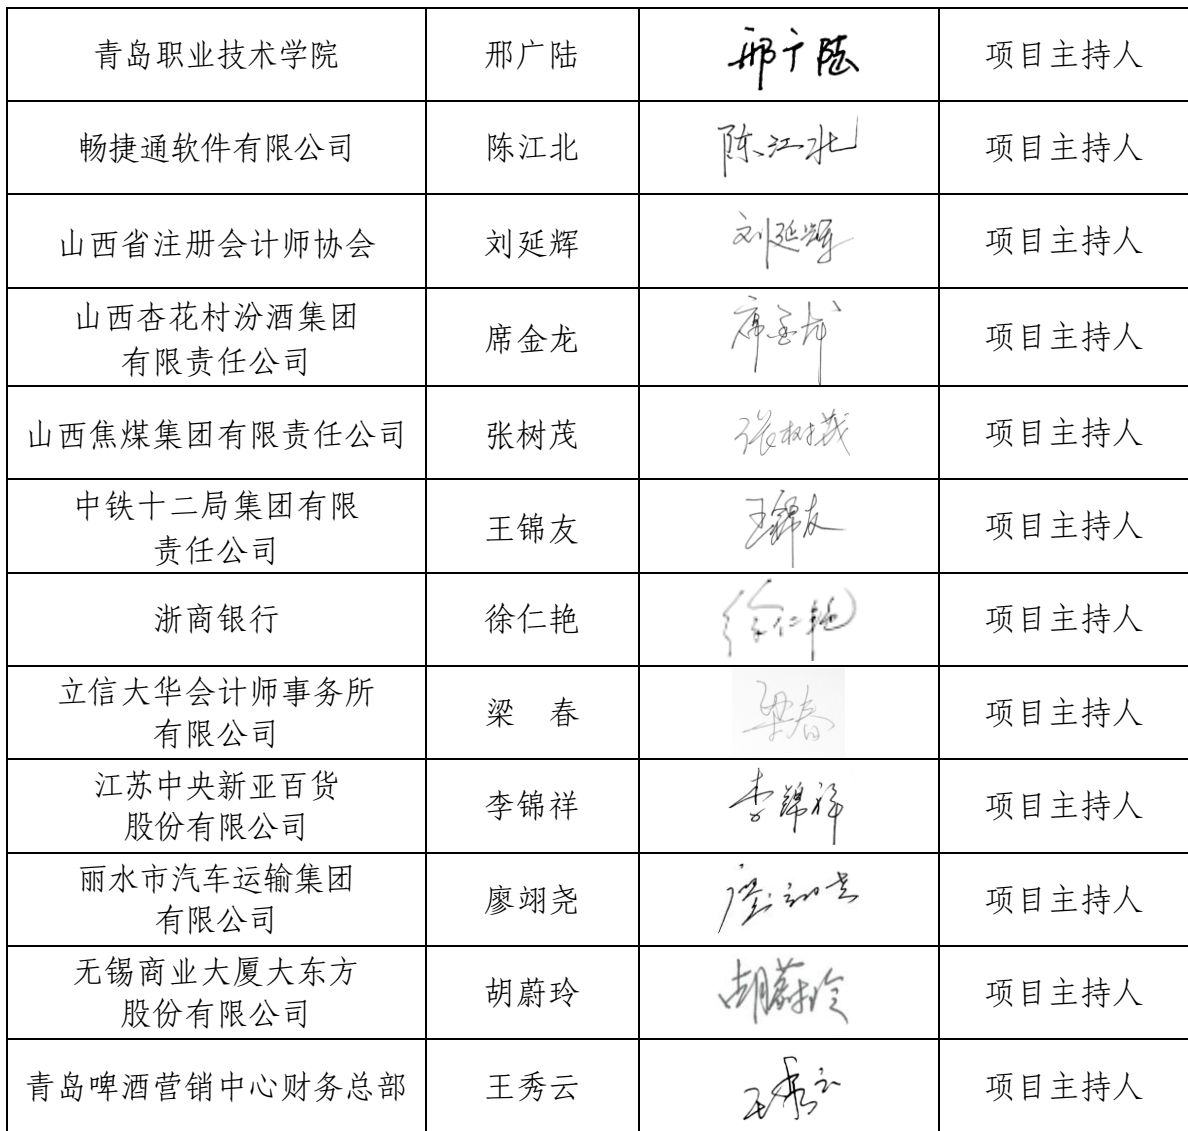 青岛职业技术学院 邢广陆 邢广陆 项目主持人
畅捷通软件有限公司 陈江北 陈江北 项目主持人
山西省注册会计师协会 刘延辉 刘延辉 项目主持人
山西杏花村汾酒集团
有限责任公司 席金龙 席金龙 项目主持人
山西焦煤集团有限责任公司 张树茂 张树茂 项目主持人
中铁十二局集团有限
责任公司 王锦友 王锦友 项目主持人
浙商银行 徐仁艳 徐仁艳 项目主持人
立信大华会计师事务所
有限公司 梁 春 梁春 项目主持人
江苏中央新亚百货
股份有限公司 李锦祥 李锦祥 项目主持人
丽水市汽车运输集团
有限公司 廖翊尧 廖翊尧 项目主持人
无锡商业大厦大东方
股份有限公司 胡蔚玲 胡蔚玲 项目主持人
青岛啤酒营销中心财务总部 王秀云 王秀云 项目主持人